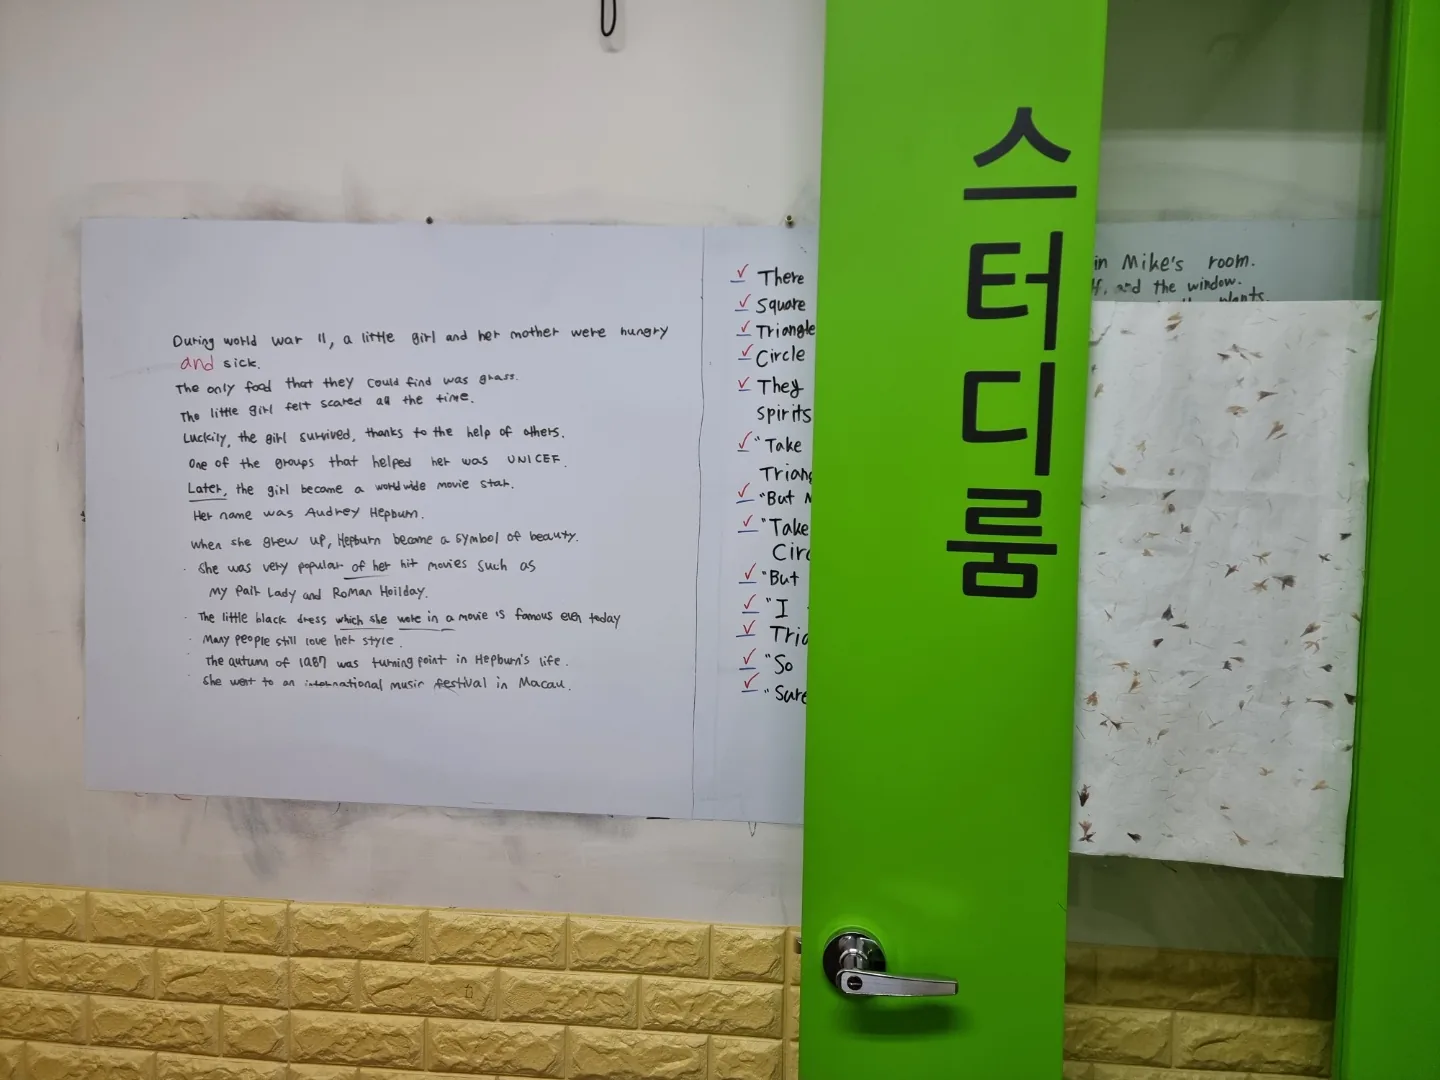 During world war 11, a little girl and her mother were hungry
and sick.
The only food that they could find was grass.
The little girl felt scared all the time.
Luckily, the girl survived, thanks to the help of others.
One of the groups that helped her was UNICEF.
Later, the girl became a worldwide movie star.
Her name was Audrey Hepburn.
When she grew up, Hepburn became a symbol of beauty.
She was very popular of her hit movies such as
My Pair Lady and Roman Hoilday.
The little black dress which she wote in a movie is famous even today
Many people still love her style.
The autumn of 1987 was turning point in Hepburn's life.
She went to an international music festival in Macau.
There
Square
Triangle
Circle
They
spirits
"Take
Triang
"But
"Take
Circ
"But
"I
Tria
"So
"Sure
스터디룸
in Mike's room.
lf, and the window.
plants.